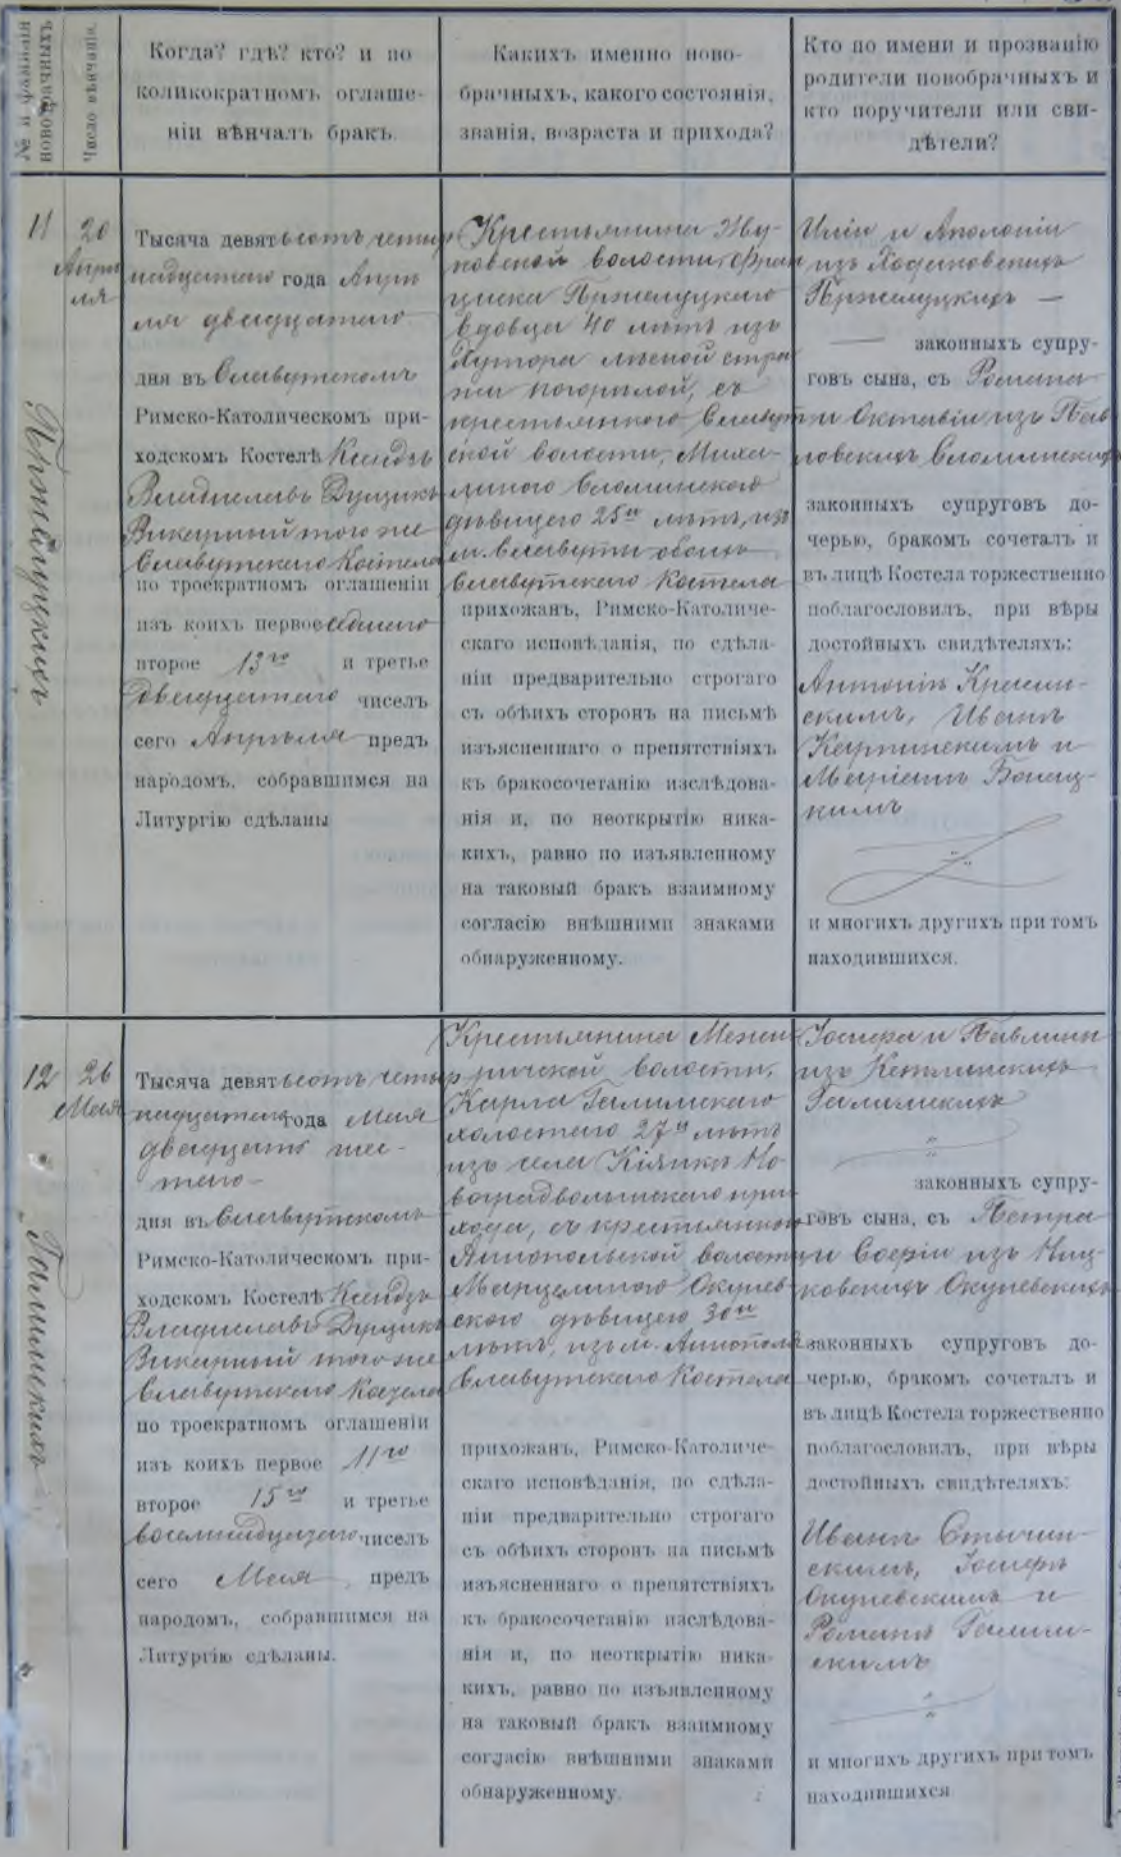 № и фамилія
новобрачныхъ
Число вѣнчанія.
Когда? гдѣ? кто? и по
коликократномъ оглаше-
ніи вѣнчалъ бракъ.
Какихъ именно ново-
брачныхъ, какого состоянія,
званія, возраста и прихода?
Кто по имени и прозванію
родители новобрачныхъ и
кто поручители или сви-
дѣтели?
11
Пржелуцкихъ
20
Апрѣ
ля
Тысяча девятьсотъ четыр
надцатаго года Апрѣ
ля двадцатаго
дня въ Славутскомъ
Римско-Католическомъ при-
ходскомъ Костелѣ Ксендзъ
Владиславъ Дущикъ
Викарный того же
Славутскаго Костела
по троекратномъ оглашеніи
изъ коихъ первое
второе 13го и третье
двадцатаго чиселъ
сего Апрѣля предъ
народомъ, собравшимся на
Литургію сдѣланы
Крестьянина
волости, Фран
циска Пржелуцкаго
вдовца 40 лѣтъ изъ
Хутора лѣсной стра
жи погорѣлой, съ
крестьянкою Славут
ской волости, Миха-
линою Сломинскою
дѣвицею 25ти лѣтъ, изъ
м. Славуты обоихъ
Славутскаго Костела
прихожанъ, Римско-Католиче-
скаго исповѣданія, по сдѣла-
ніи предварительно строгаго
съ обѣихъ сторонъ на письмѣ
изъясненнаго о препятствіяхъ
къ бракосочетанію изслѣдова-
нія и, по неоткрытію ника-
кихъ, равно по изъявленному
на таковый бракъ взаимному
согласію внѣшними знаками
обнаруженному.
Иліи и Аполоніи
изъ Ходаковскихъ
Пржелуцкихъ —
— законныхъ супру-
говъ сына, съ Романа
и Октавіи изъ Пав
ловскихъ Сломинскихъ
законныхъ супруговъ до-
черью, бракомъ сочеталъ и
въ лицѣ Костела торжественно
поблагословилъ, при вѣры
достойныхъ свидѣтеляхъ:
Антонѣ Красин-
скимъ, Иванѣ
Карпинскимъ и
Маріанѣ Бонец-
кимъ
и многихъ другихъ при томъ
находившихся.
12
Галимскихъ
26
Мая
Тысяча девятьсотъ четыр
надцатаго года Мая
двадцать шес-
таго-
дня въ Славутскомъ
Римско-Католическомъ при-
ходскомъ Костелѣ Ксендзъ
Владиславъ Дущикъ
Викарный того же
Славутскаго Костела
по троекратномъ оглашеніи
изъ коихъ первое 11го
второе 15го и третье
восемнадцатаго чиселъ
сего Мая предъ
народомъ, собравшимся на
Литургію сдѣланы.
Крестьянина Межи
ричской волости,
Карла Галимскаго
холостаго 27и лѣтъ
изъ села Кіянки Но
воградволынскаго при
хода, съ крестьянкою
Аннопольской волости
Марцелиною Окунев-
скою дѣвицею 30ти
лѣтъ, изъ м. Аннополя
Славутскаго Костела
прихожанъ, Римско-Католиче-
скаго исповѣданія, по сдѣла-
ніи предварительно строгаго
съ обѣихъ сторонъ на письмѣ
изъясненнаго о препятствіяхъ
къ бракосочетанію изслѣдова-
нія и, по неоткрытію ника-
кихъ, равно по изъявленному
на таковый бракъ взаимному
согласію внѣшними знаками
обнаруженному.
Іосифа и Павлины
изъ Кетлинскихъ
Галимскихъ
законныхъ супру-
говъ сына, съ Петра
и Софіи изъ Ниц-
ковскихъ Окуневскихъ
законныхъ супруговъ до-
черью, бракомъ сочеталъ и
въ лицѣ Костела торжественно
поблагословилъ, при вѣры
достойныхъ свидѣтеляхъ:
Иванѣ Стычин-
скимъ, Іосифѣ
Окуневскимъ и
Романѣ Галим-
скимъ
и многихъ другихъ при томъ
находившихся